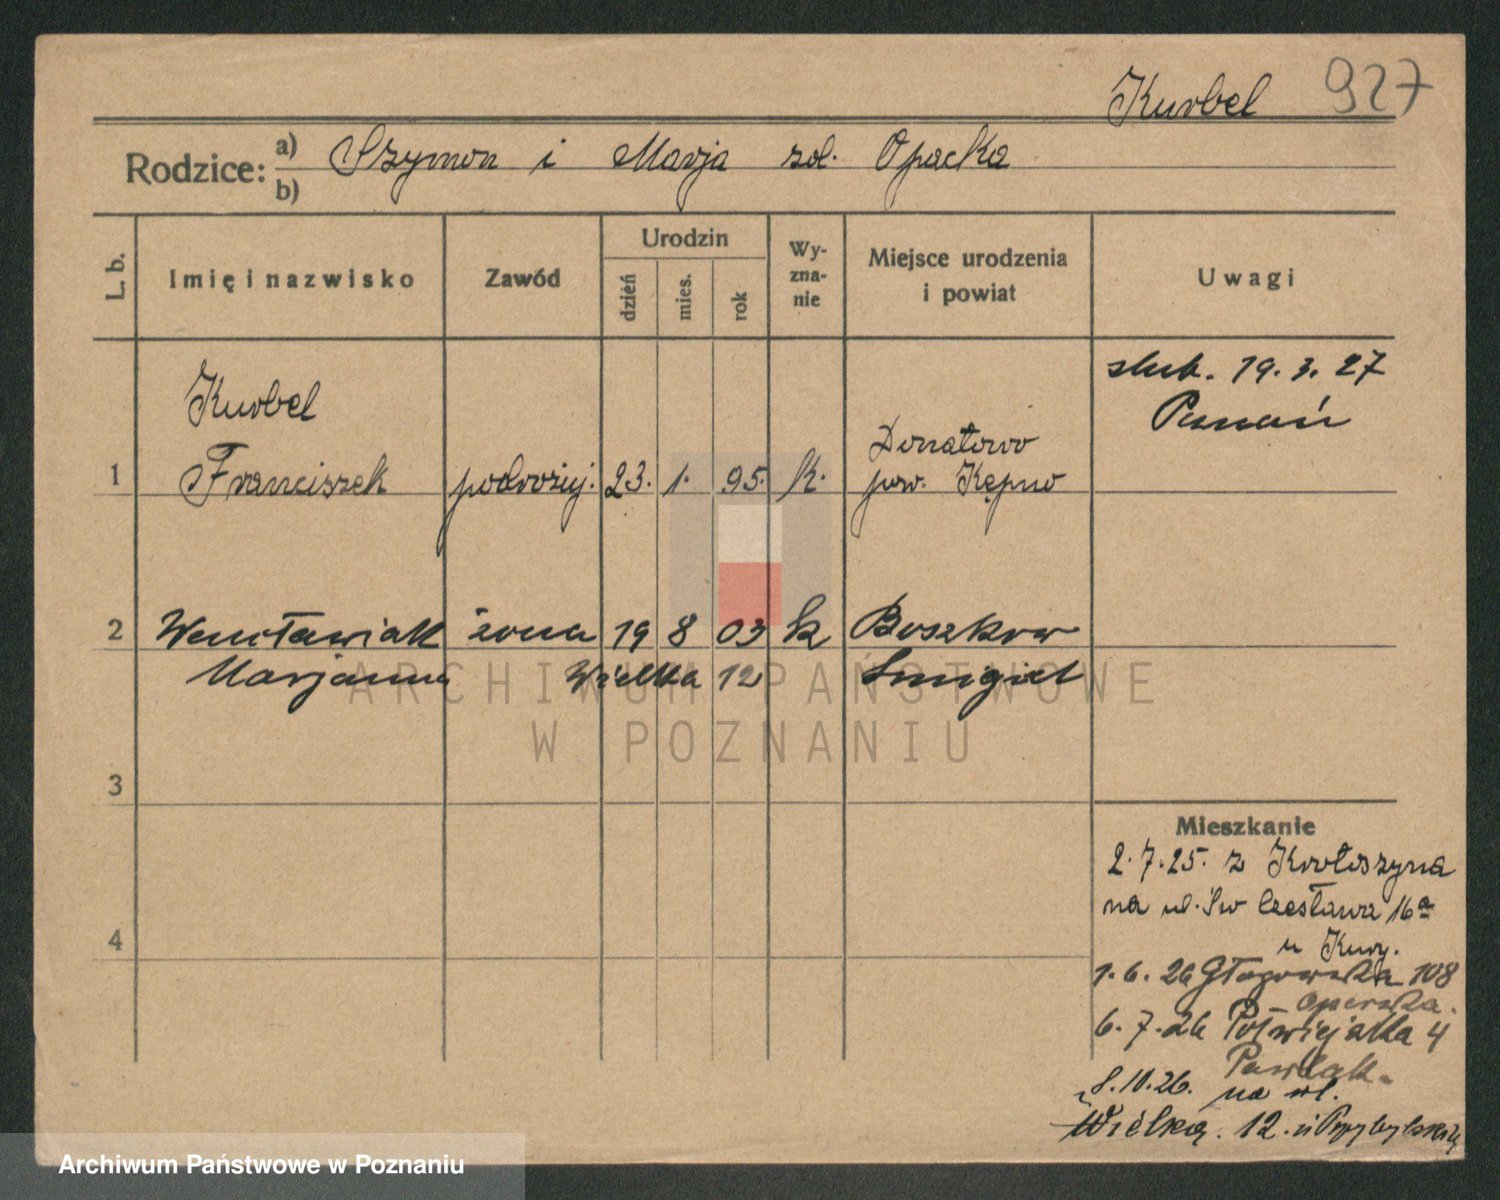 Kurbel 927
Rodzice: a) Szymon i Marja zd. Opacka
b)
L. b.
Imię i nazwisko
Zawód
Urodzin
dzień
mies.
rok
Wy-
zna-
nie
Miejsce urodzenia
i powiat
Uwagi
ślub. 19. 3. 27
Poznań
Kurbel
1 Franciszek podrożuj. 23. 1. 95. k. Donatowo
pow. Kępno
2 Wencławiak żona 19 8 03 k Boszkow
Marjanna Wielka 12 Smigiel
3
4
Mieszkanie
2.7.25. z Krotoszyna
na ul. Św Czesława 16a
u Kurz.
1.6.26 Głogowska 108
6.7.26 Półwiejska 4
Pawlak.
8.10.26. na ul.
Wielką. 12.
ARCHIWUM PAŃSTWOWE
W POZNANIU
Archiwum Państwowe w Poznaniu